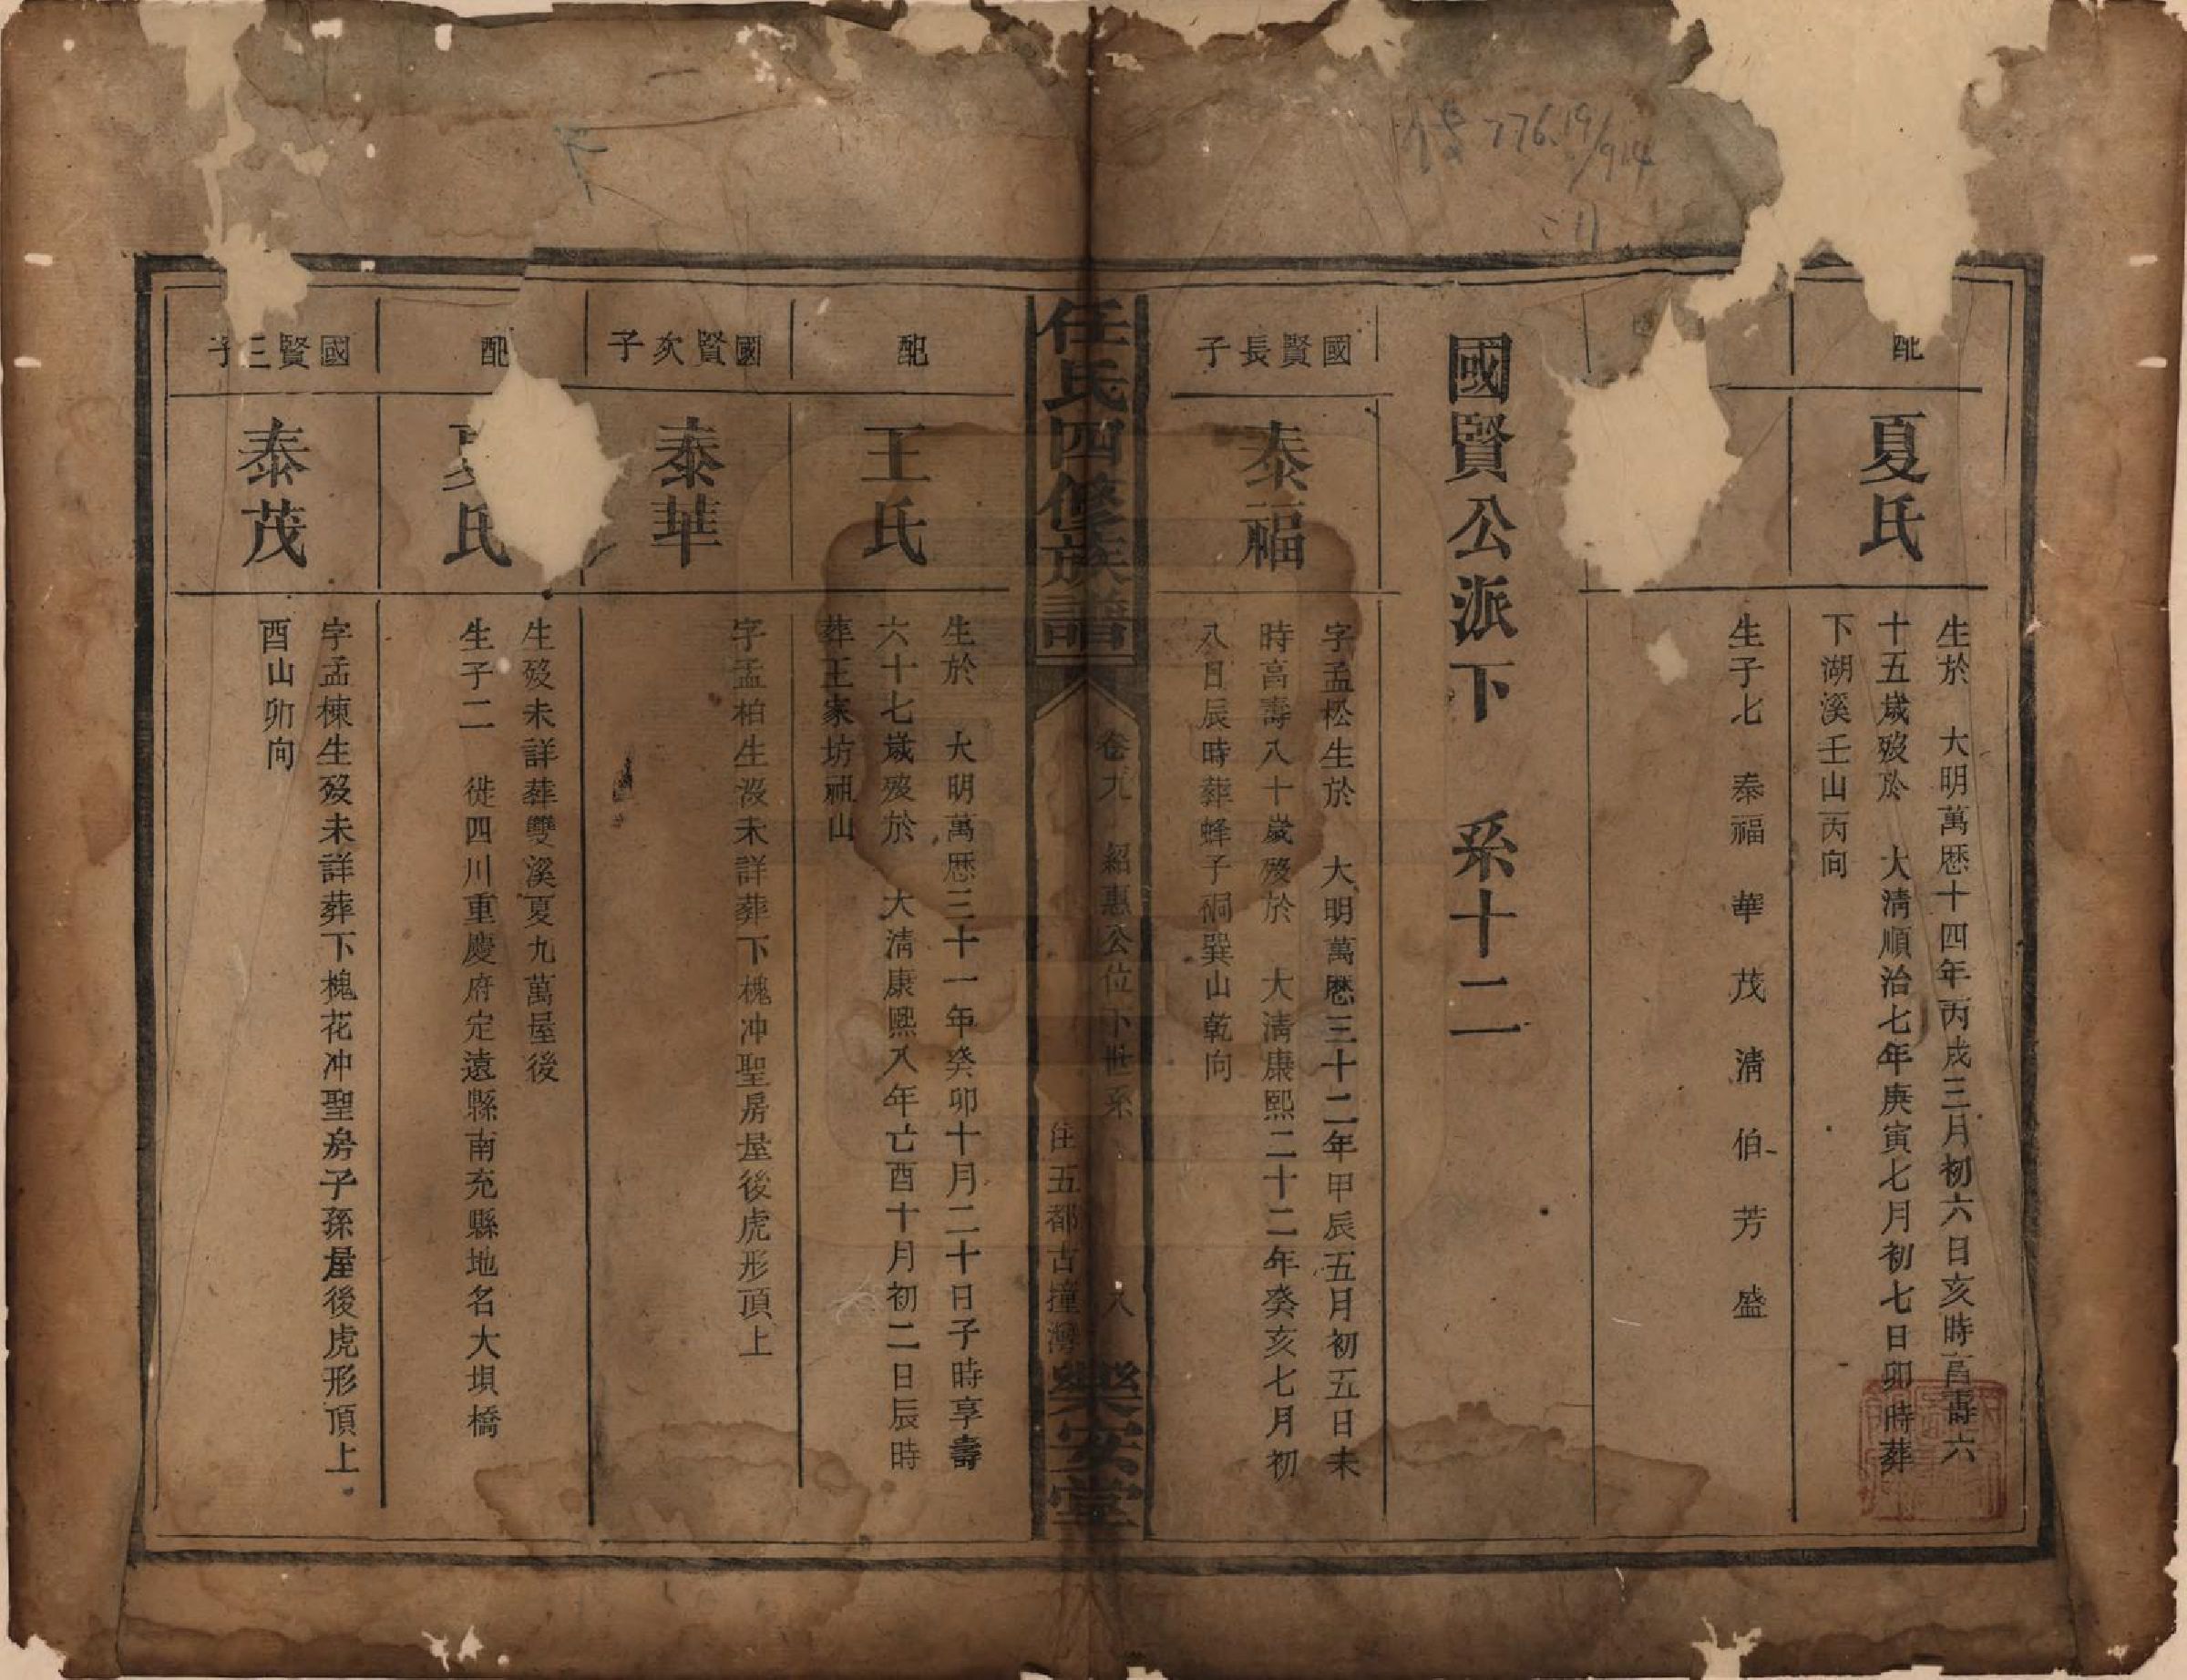 配
夏氏
生於　大明萬歷十四年丙戌三月初六日亥時亯壽六
十五歲歿於　大清順治七年庚寅七月初七日卯時葬
下湖溪壬山丙向
生子七　泰福　華　茂　清　伯　芳　盛
國賢公派下　系十二
國賢長子
泰福
字孟松生於　大明萬歷三十二年甲辰五月初五日未
時亯壽八十歲歿於　大清康熙二十二年癸亥七月初
八日辰時葬蜂子硐巽山乾向
任氏四修族譜
卷九　紹惠公位下世系　八
住五都古撞灣
樂安堂
配
王氏
生於　大明萬歷三十一年癸卯十月二十日子時享壽
六十七歲歿於　大清康熙八年亡酉十月初二日辰時
葬王家坊祖山
國賢次子
泰華
字孟柏生歿未詳葬下槐冲聖房屋後虎形頂上
配
夏氏
生歿未詳葬雙溪夏九萬屋後
生子二　徙四川重慶府定遠縣南充縣地名大垻橋
國賢三子
泰茂
字孟棟生歿未詳葬下槐花冲聖房子孫屋後虎形頂上
酉山卯向
776.19/914